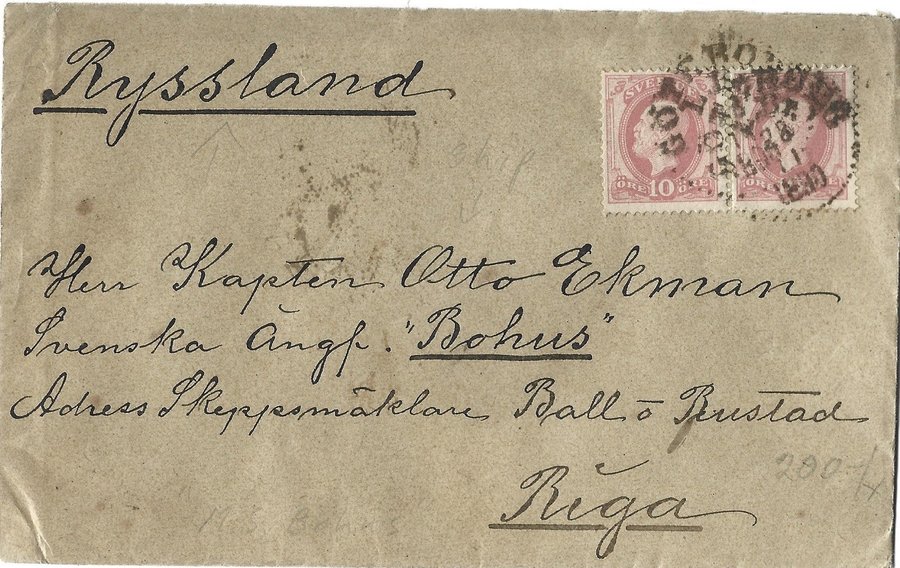 Ryssland
SVERIGE
ÖRE 10 ÖRE
ship
Herr Kapten Otto Ekman
Svenska Ångf. "Bohus"
Adress Skeppsmäklare Ball o
Riga
200